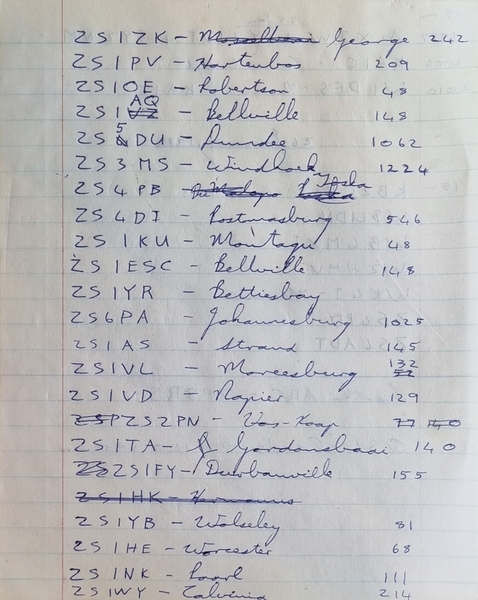 ZS1ZK - Mosselbaai George 242
ZS1PV - Hartenbos 209
ZS1OE - Robertson 48
ZS1VZ AQ - Bellville 148
ZS5DU - Dundee 1062
ZS3MS - Windhoek 1224
ZS4PB -
ZS4DI - Postmasburg 546
ZS1KU - Montagu 48
ZS1ESC - Bellville 148
ZS1YR - Bettiesbay
ZS6PA - Johannesburg 1025
ZS1AS - Strand 145
ZS1VL - Moreesburg 132
ZS1VD - Napier 129
ZSPZS2PN - Oos-Kaap 77 140
ZS1TA - Gordonsbaai 140
ZSZS1FY - Durbanville 155
ZS1HK - Hermanus
ZS1YB - Wolseley 81
ZS1HE - Worcester 68
ZS1NK - Paarl 111
ZS1WY - Calvinia 214